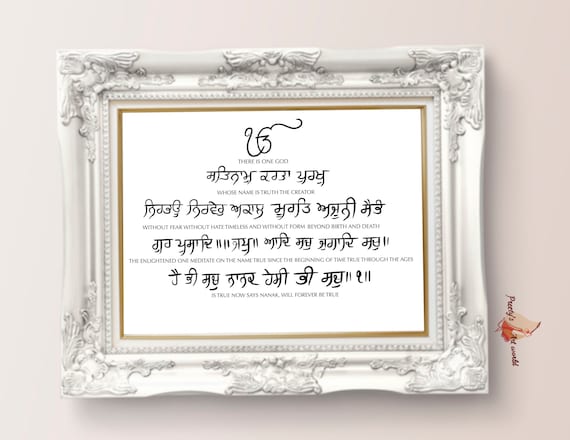 ੴ
THERE IS ONE GOD
ਸਤਿਨਾਮੁ ਕਰਤਾ ਪੁਰਖੁ
WHOSE NAME IS TRUTH THE CREATOR
ਨਿਰਭਉ ਨਿਰਵੈਰ ਅਕਾਲ ਮੂਰਤਿ ਅਜੂਨੀ ਸੈਭੰ
WITHOUT FEAR WITHOUT HATE TIMELESS AND WITHOUT FORM BEYOND BIRTH AND DEATH
ਗੁਰ ਪ੍ਰਸਾਦਿ॥ ॥ਜਪੁ॥ ਆਦਿ ਸਚੁ ਜੁਗਾਦਿ ਸਚੁ॥
THE ENLIGHTENED ONE MEDITATE ON THE NAME TRUE SINCE THE BEGINNING OF TIME TRUE THROUGH THE AGES
ਹੈ ਭੀ ਸਚੁ ਨਾਨਕ ਹੋਸੀ ਭੀ ਸਚੁ॥ ੧॥
IS TRUE NOW SAYS NANAK, WILL FOREVER BE TRUE
Preety's
Art world